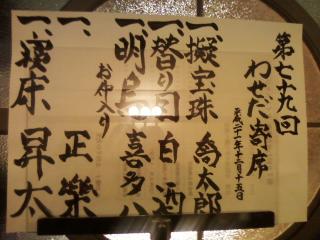 第七十九回
わせだ寄席
平成二十一年十二月十五日
一、擬宝珠 喬太郎
一、替り目 白酒
一、明烏 喜多八
お仲入り
一、 正樂
一、寝床 昇太